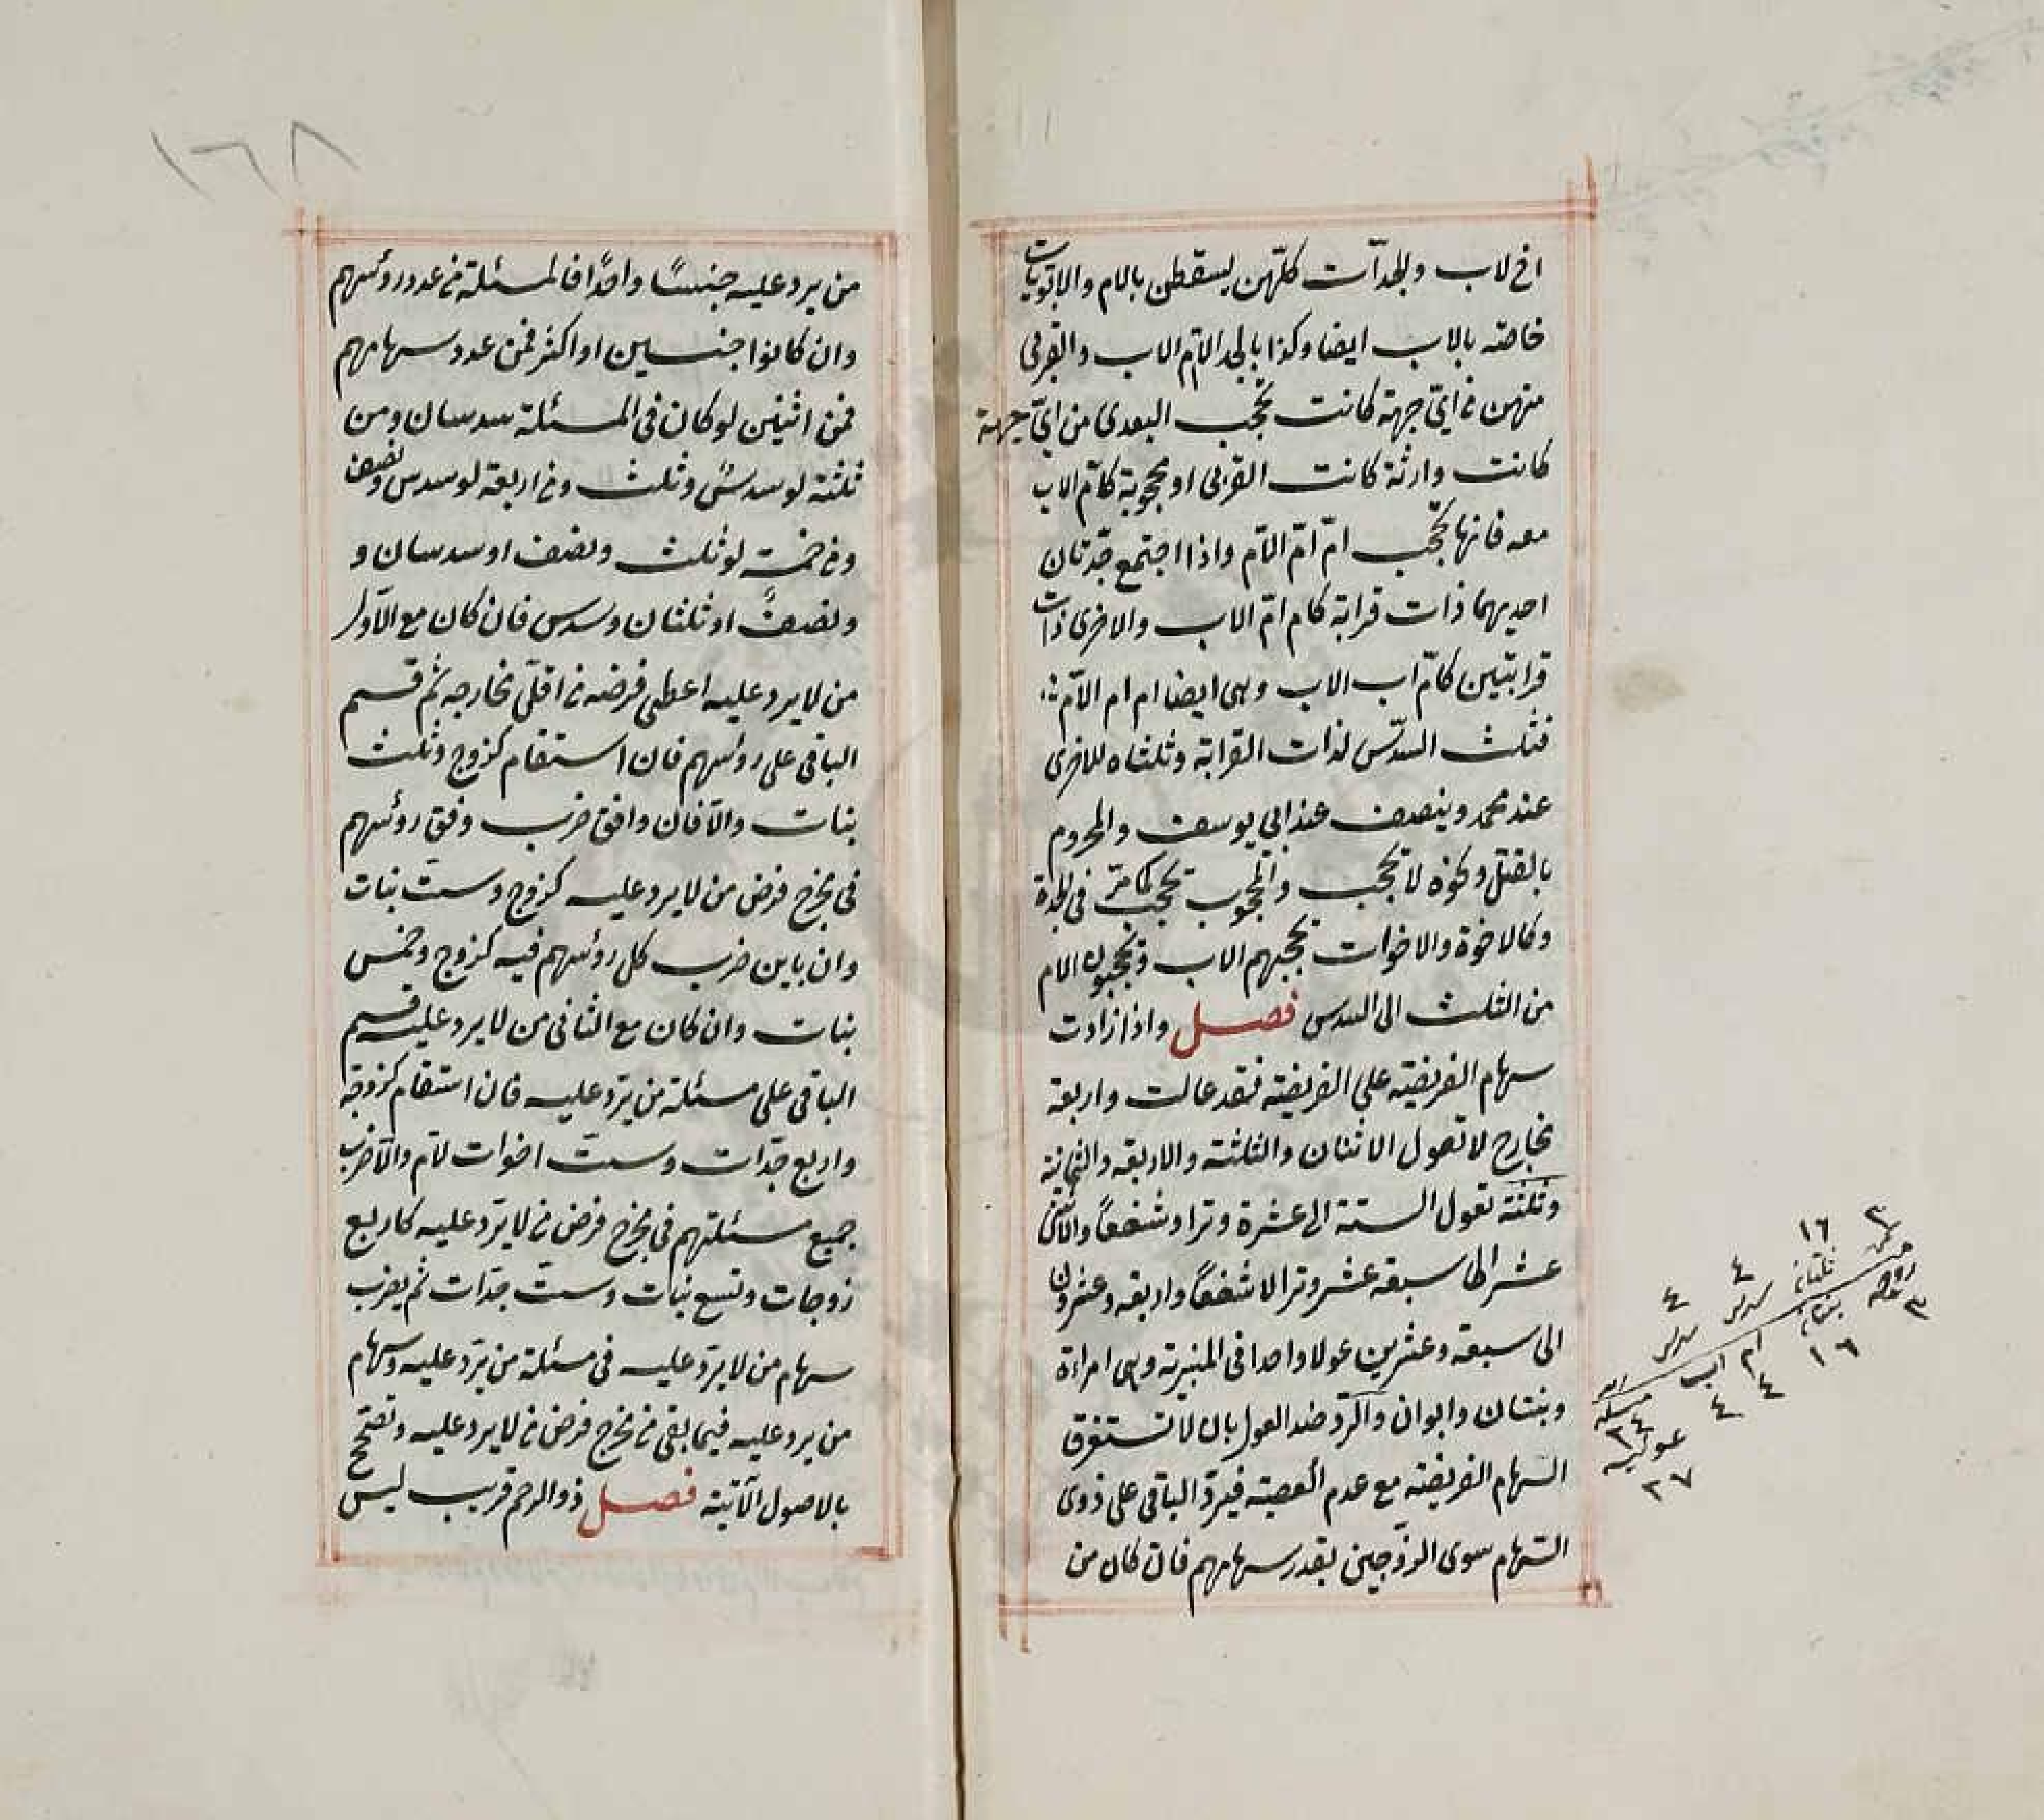 اخ لاب والجدّات كلّهن يسقطن بالام والابويات
خاصة بالاب ايضا وكذا بالجد الا ام الاب والقربى
منهن من ايّ جهة كانت تحجب البعدى من ايّ جهة
كانت وارثة كانت القربى او محجوبة كامّ الاب
معه فانها تحجب امّ امّ الامّ واذا اجتمع جدّتان
احديهما ذات قرابة كام امّ الاب والاخرى ذات
قرابتين كامّ اب الاب وهى ايضا ام ام الامّ
فثلث السدس لذات القرابة وثلثاه للاخرى
عند محمد وينصف عند ابي يوسف والمحروم
بالقتل ونحوه لا يحجب والمحجوب يحجب كما مرّ في الجدة
وكالاخوة والاخوات يحجبهم الاب ويحجبون الام
من الثلث الى السدس فصل واذا زادت
سهام الفريضة على الفريضة فقد عالت واربعة
مخارج لا تعول الاثنان والثلثة والاربعة والثمانية
وثلثة تعول الستة الى عشرة وترا وشفعاً والاثنى
عشر الى سبعة عشر وترا لا شفعاً واربعة وعشرون
الى سبعة وعشرين عولا واحدا في المنبرية وهى امراءة
وبنتان وابوان والردّ ضد العول بان لا تستغرق
السهام الفريضة مع عدم العصبة فيردّ الباقى على ذوى
السّهام سوى الزوجين بقدر سهامهم فان كان من
٣
ثمن
زوجة
٣
١٦
ثلثان
بنتان
١٦
٤
سدس
ام
٤
٤
سدس
اب
٤
مسئله
٢٤
عولية
٢٧
١٦٨
من يرد عليه جنسًا واحدًا فالمسئلة من عدد رؤسهم
وان كانوا جنسين او اكثر فمن عدد سهامهم
فمن اثنين لو كان في المسئلة سدسان ومن
ثلثة لو سدسٌ وثلث ومن اربعة لو سدس ونصف
ومن خمسة لو ثلث ونصف او سدسان و
ونصفٌ او ثلثان وسدس فان كان مع الاول
من لا يرد عليه اعطى فرضه من اقلّ مخارجه ثم قسم
الباقى على رؤسهم فان استقام كزوج وثلث
بنات والّا فان وافق ضرب وفق رؤسهم
في مخرج فرض من لا يرد عليه كزوج وست بنات
وان باين ضرب كل رؤسهم فيه كزوج وخمس
بنات وان كان مع الثانى من لا يرد عليه قسم
الباقى على مسئلة من يردّ عليه فان استقام كزوجة
واربع جدّات وستّ اخوات لامّ والّا ضرب
جميع مسئلتهم في مخرج فرض من لا يردّ عليه كاربع
زوجات وتسع بنات وستّ جدّات ثم يضرب
سهام من لا يردّ عليه في مسئلة من يردّ عليه وسهام
من يرد عليه فيما بقى من مخرج فرض من لا يرد عليه وتصحّح
بالاصول الآتية فصل ذو الرحم قريب ليس